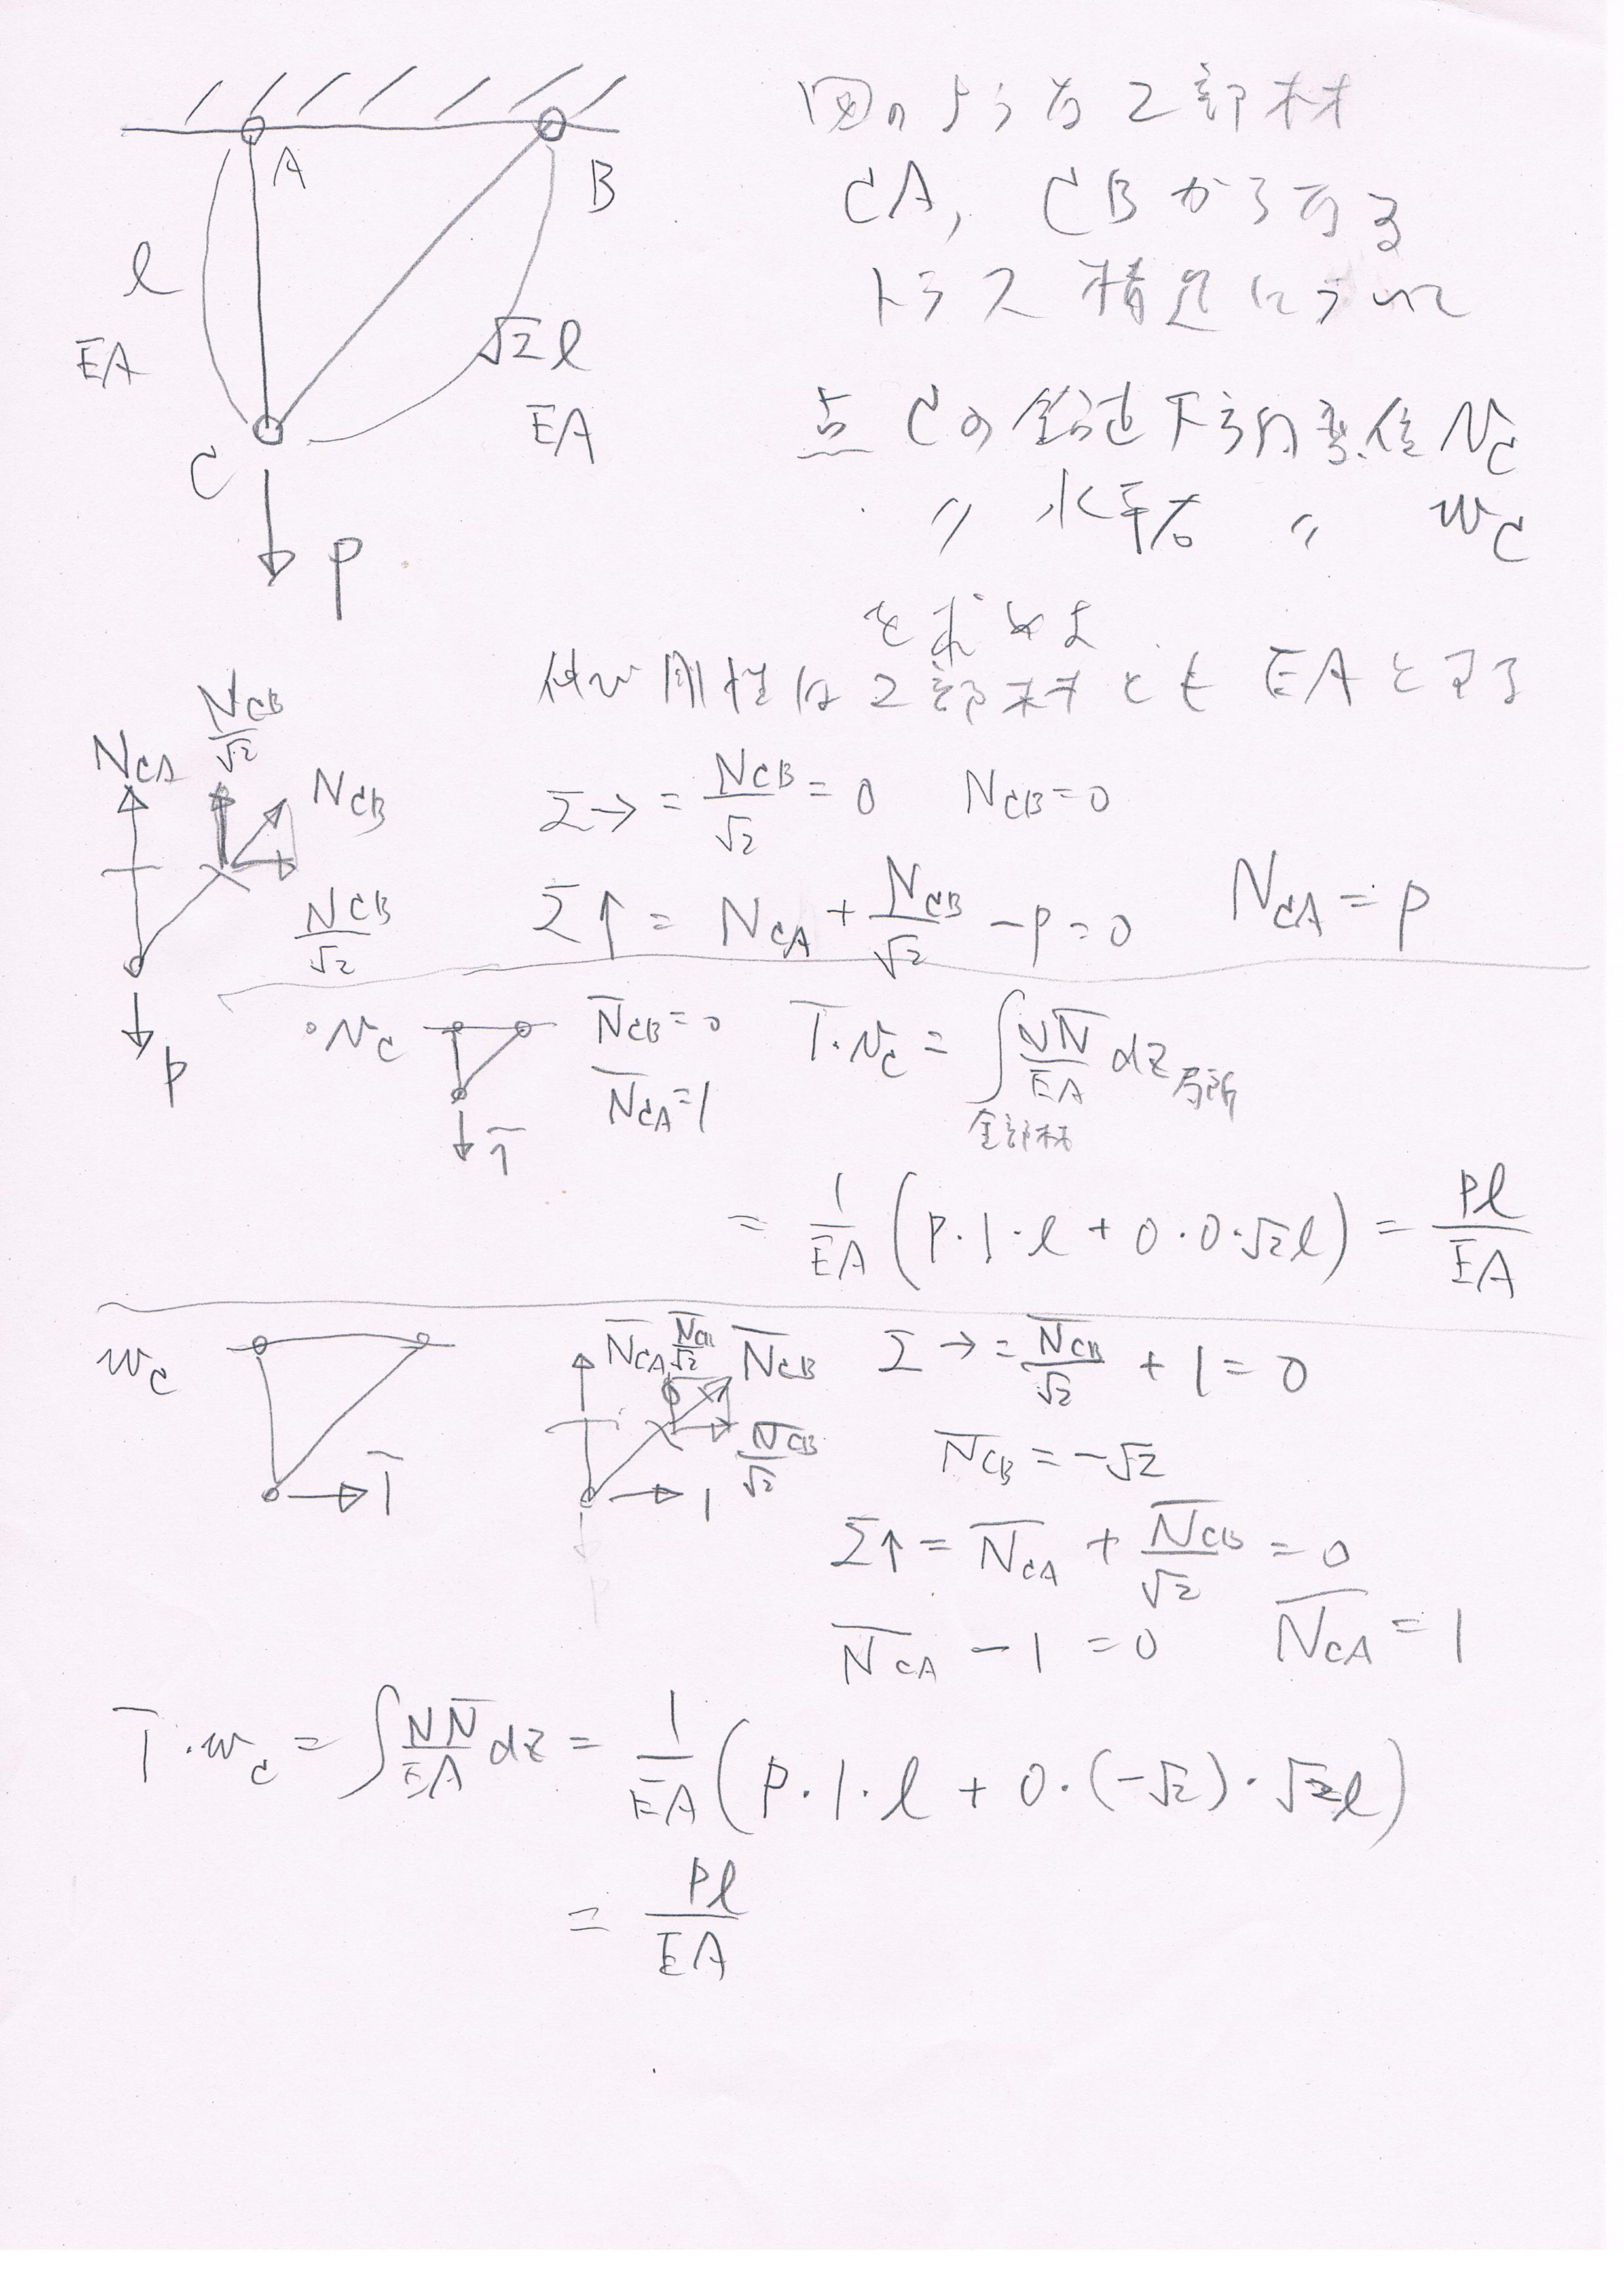 A
B
l
EA
√2 l
EA
C
P
図のような2部材
CA, CBからなる
トラス構造について
点Cの鉛直下方向変位 vC
〃 水平右 〃 wC
を求めよ
伸び剛性は2部材とも EAとする
NCA
NCB/√2
NCB
NCB/√2
P
Σ→ = NCB/√2 = 0 NCB=0
Σ↑ = NCA + NCB/√2 - P = 0 NCA = P
°vC
1̄
N̄CB=0
N̄CA=1
1̄・vC = ∫全部材 NN̄/EA dz局所
= 1/EA (P・1・l + 0・0・√2l) = Pl/EA
wC
1̄
N̄CA
N̄CB/√2
N̄CB
N̄CB/√2
1
P
Σ→ = N̄CB/√2 + 1 = 0
N̄CB = -√2
Σ↑ = N̄CA + N̄CB/√2 = 0
N̄CA - 1 = 0 N̄CA = 1
1̄・wC = ∫ NN̄/EA dz = 1/EA (P・1・l + 0・(-√2)・√2l)
= Pl/EA